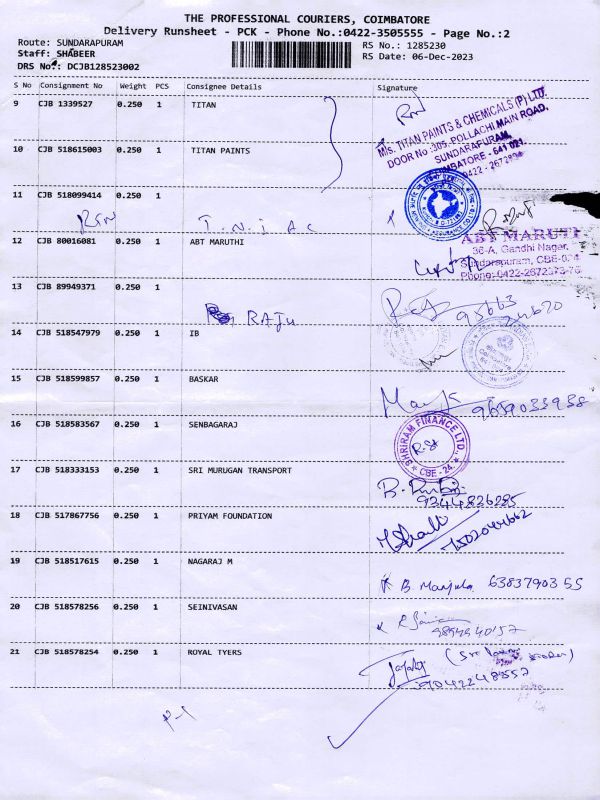 THE PROFESSIONAL COURIERS, COIMBATORE
Delivery Runsheet - PCK - Phone No.:0422-3505555 - Page No.:2
Route: SUNDARAPURAM
RS No.: 1285230
Staff: SHABEER
RS Date: 06-Dec-2023
DRS No.: DCJB128523002
S No Consignment No Weight PCS Consignee Details Signature
9 CJB 1339527 0.250 1 TITAN
M/s. TITAN PAINTS & CHEMICALS (P) LTD.
DOOR No :305, POLLACHI MAIN ROAD,
SUNDARAPURAM,
COIMBATORE - 641 021.
10 CJB 518615003 0.250 1 TITAN PAINTS
11 CJB 518099414 0.250 1
T.N.I.A.C
12 CJB 80016081 0.250 1 ABT MARUTHI
ABT MARUTI
36-A, Gandhi Nagar,
Sundarapuram, CBE-024
Phone: 0422-2672373-76
13 CJB 89949371 0.250 1
RAJU
14 CJB 518547979 0.250 1 IB
15 CJB 518599857 0.250 1 BASKAR
9659033938
16 CJB 518583567 0.250 1 SENBAGARAJ
SHRIRAM FINANCE LTD.
CBE - 24.
17 CJB 518333153 0.250 1 SRI MURUGAN TRANSPORT
9344826285
18 CJB 517867756 0.250 1 PRIYAM FOUNDATION
7502044662
19 CJB 518517615 0.250 1 NAGARAJ M
B. Manjula 6383790355
20 CJB 518578256 0.250 1 SEINIVASAN
9894940157
21 CJB 518578254 0.250 1 ROYAL TYERS
P-1